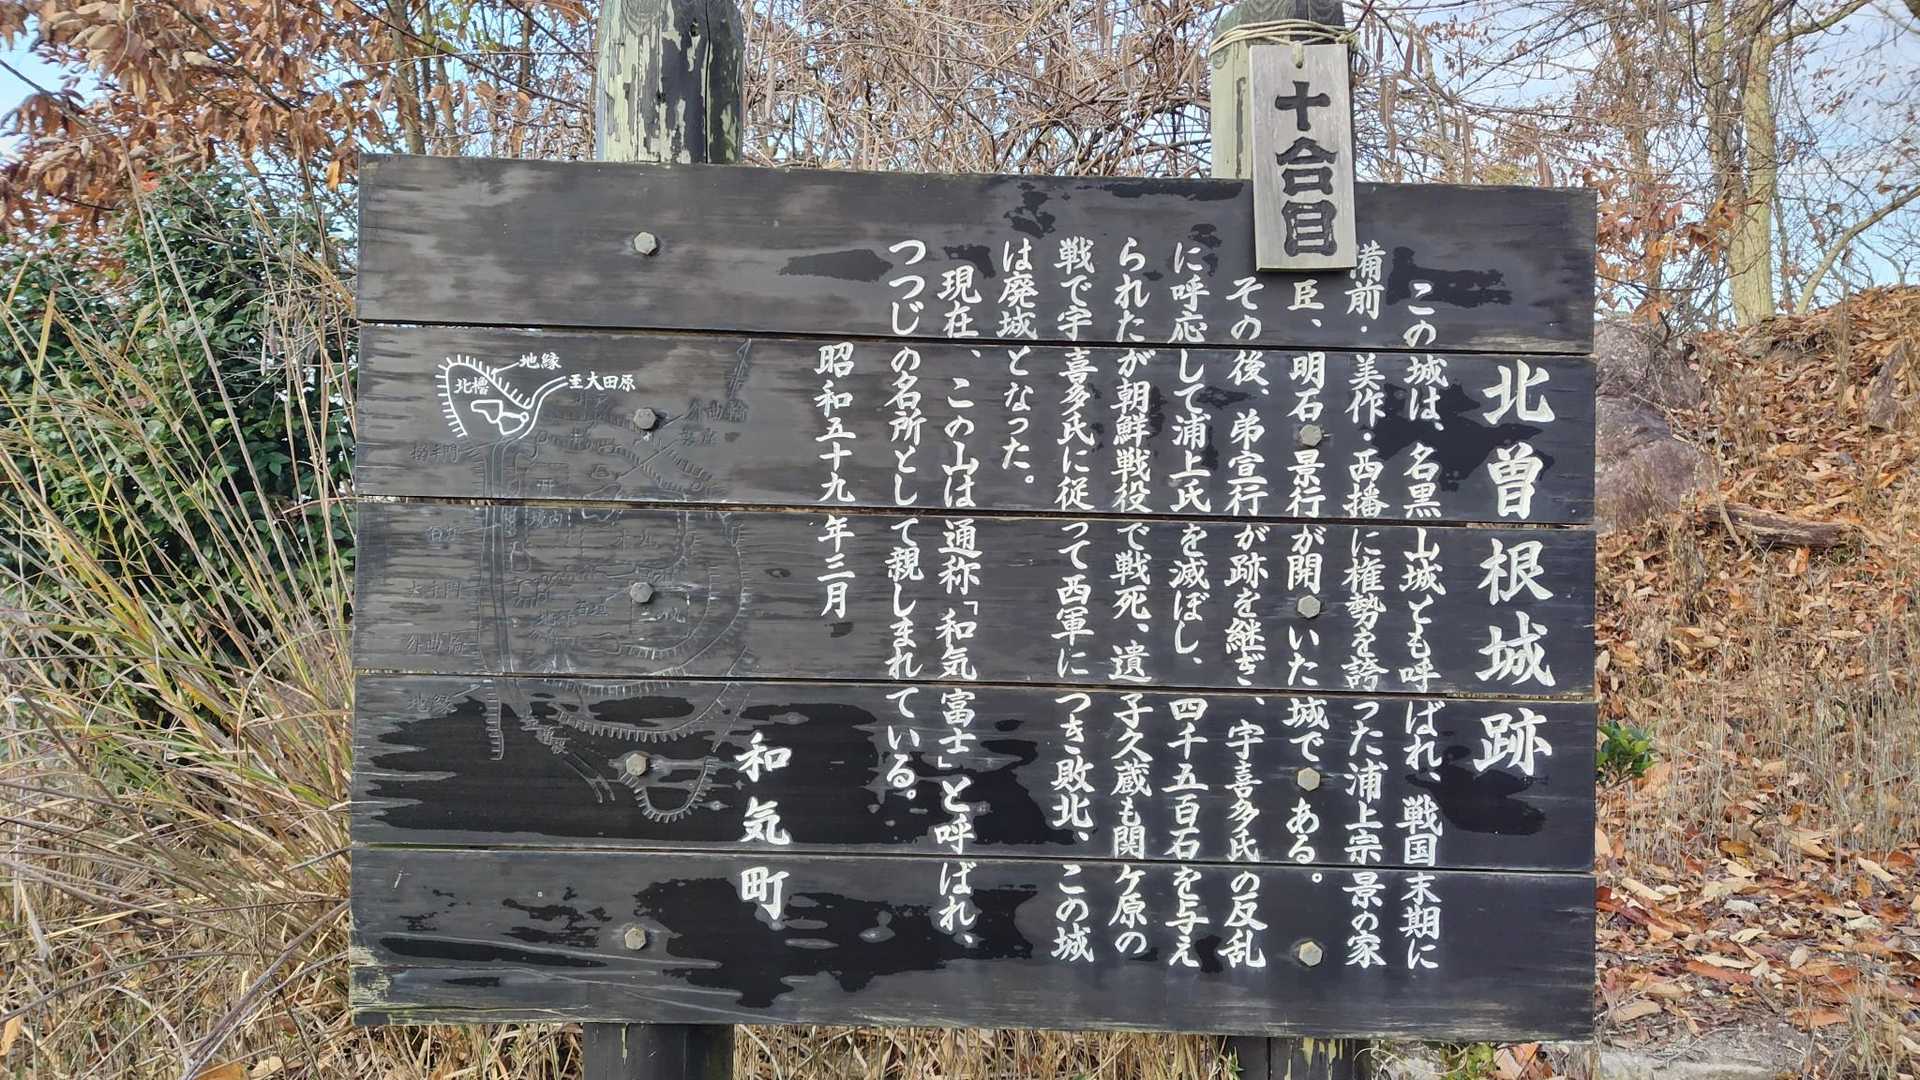 十合目
北曽根城跡
この城は、名黒山城とも呼ばれ、戦国末期に
備前・美作・西播に権勢を誇った浦上宗景の家
臣、明石景行が開いた城である。
その後、弟宣行が跡を継ぎ、宇喜多氏の反乱
に呼応して浦上氏を滅ぼし、四千五百石を与え
られたが朝鮮戦役で戦死、遺子久蔵も関ケ原の
戦で宇喜多氏に従って西軍につき敗北、この城
は廃城となった。
現在、この山は通称「和気富士」と呼ばれ、
つつじの名所として親しまれている。
昭和五十九年三月
和気町
地縁
北櫓
至大田原
外曲輪
搦手門
境内
本丸
石垣
大手門
外曲輪